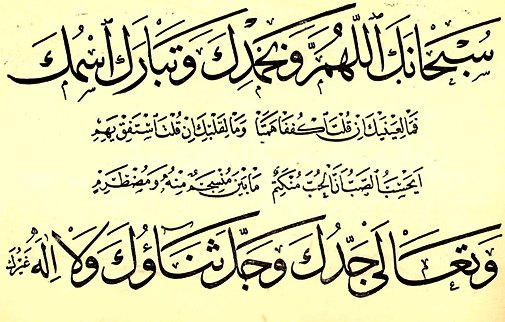 سُبْحَانَكَ ٱللَّهُمَّ وَبِحَمْدِكَ وَتَبَارَكَ ٱسْمُكَ
فَمَا لِعَيْنَيْكَ اِنْ قُلْتَ اكْفُفَا هَمَتَا وَمَا لِقَلْبِكَ اِنْ قُلْتَ اسْتَفِقْ يَهِمِ
اَيَحْسِبُ الصَّبُّ اَنَّ الْحُبَّ مُنْكَتِمٌ مَا بَيْنَ مُنْسَجِمٍ مِنْهُ وَمُضْطَرِمِ
وَتَعَالَى جَدُّكَ وَجَلَّ ثَنَاؤُكَ وَلَا اِلٰهَ غَيْرُكَ